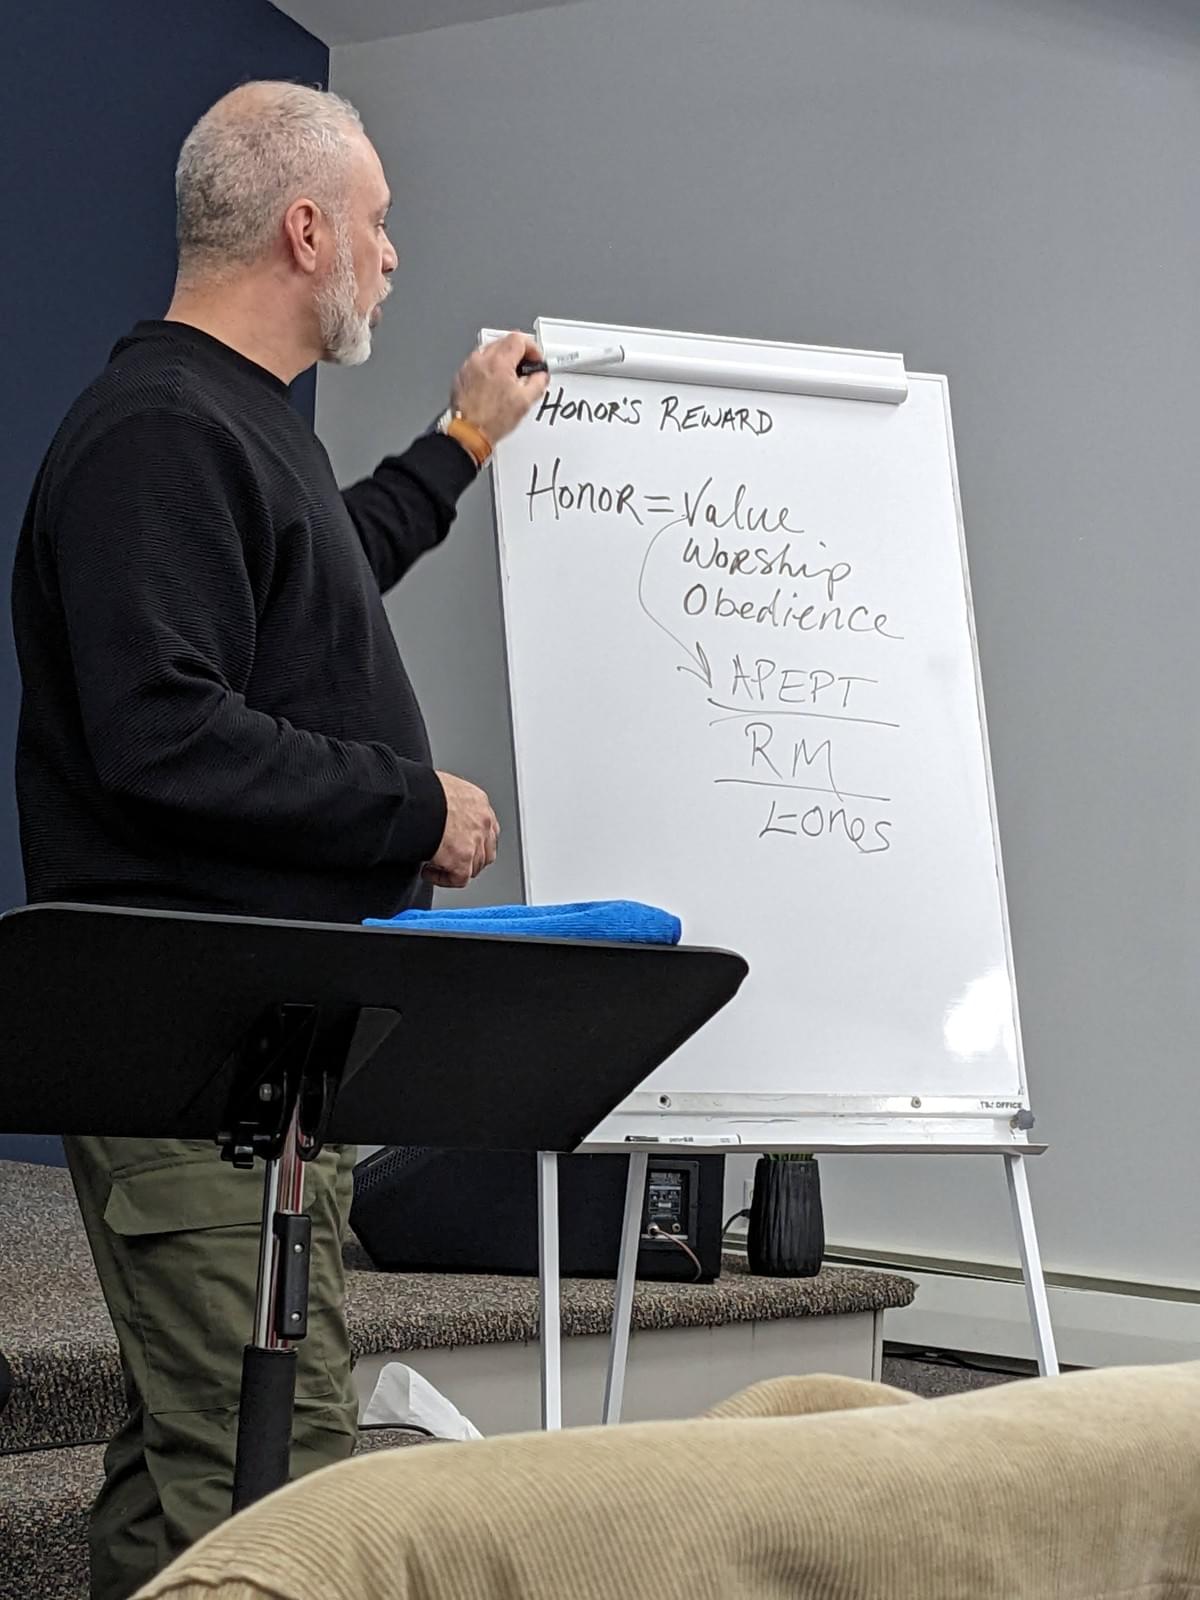 HONOR'S REWARD
HONOR = Value
Worship
Obedience
APEPT
RM
L-ones
T&J OFFICE